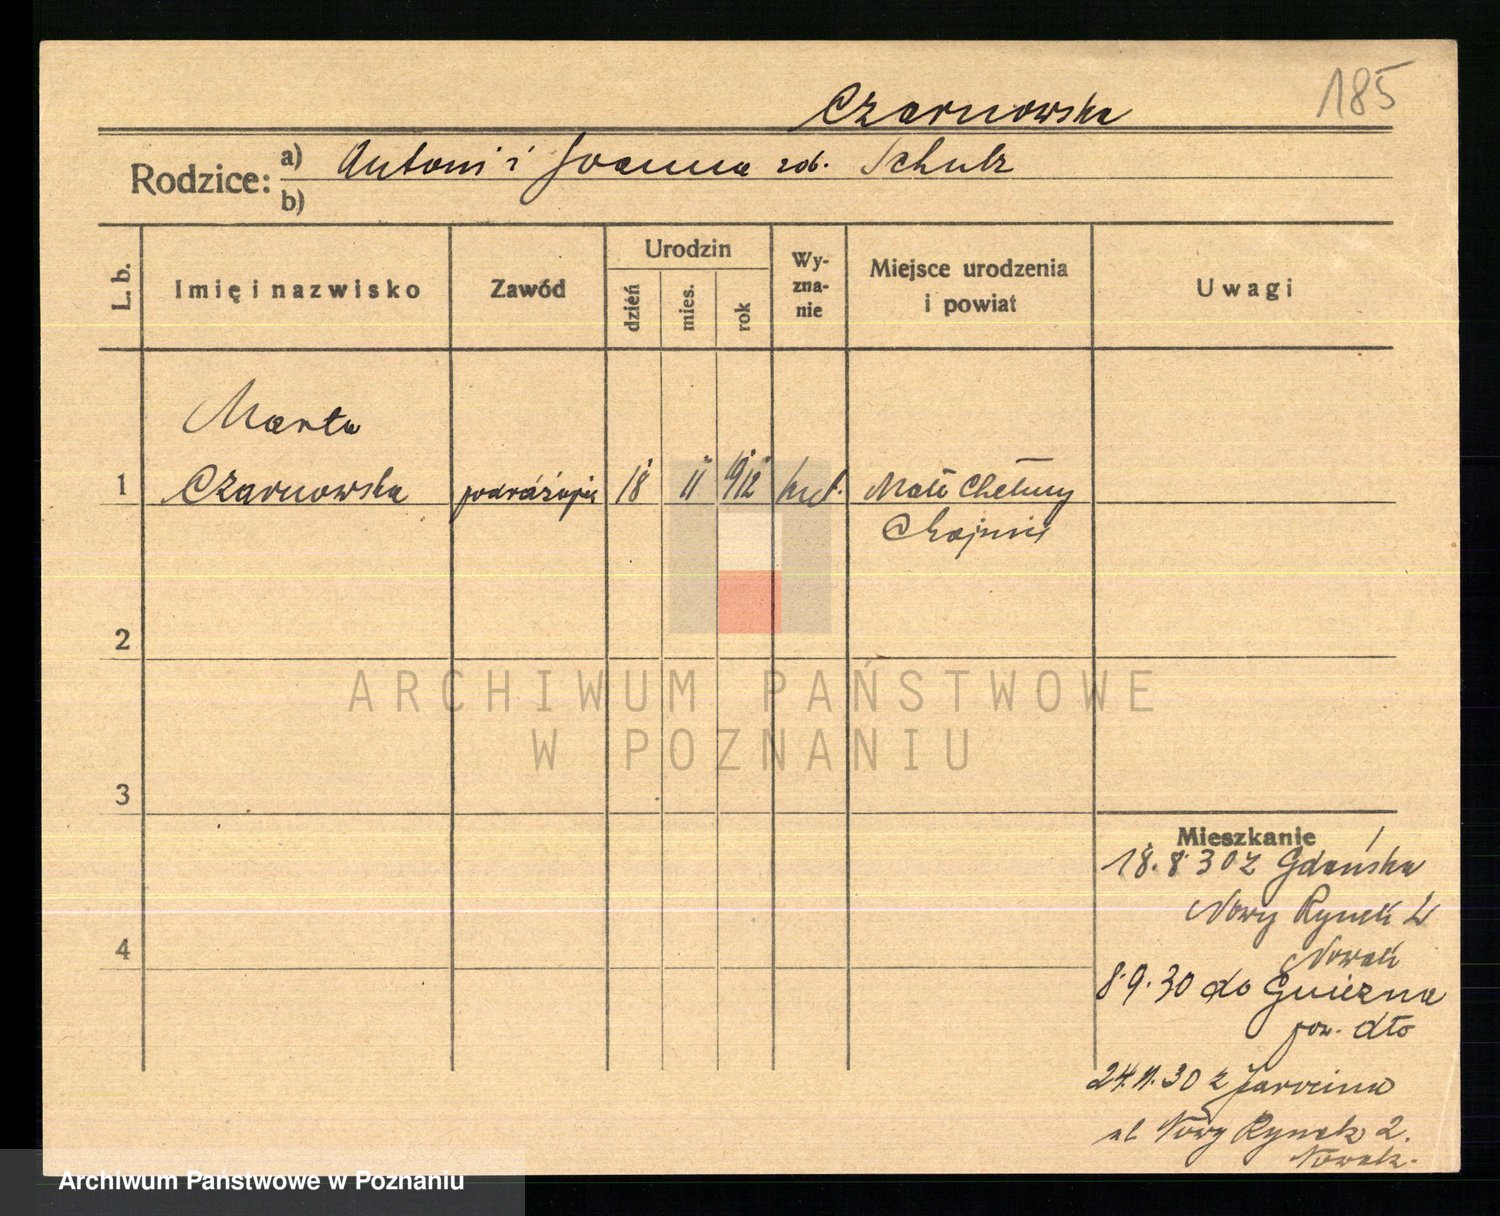 185
Czarnowska
Rodzice: a) Antoni i Joanna rob. Schulz
b)
L. b.
Imię i nazwisko
Zawód
Urodzin
dzień
mies.
rok
Wy-
zna-
nie
Miejsce urodzenia
i powiat
Uwagi
Marta
1 Czarnowska 18 11 912 kat. Małe Chełmy
Chojnice
2
3
4
Mieszkanie
18.8.30 z Gdańska
Nowy Rynek 2
Nowak
8.9.30 do Gniezna
pow. dto
24.11.30 z Jarocina
ul Nowy Rynek 2.
Nowak.
ARCHIWUM PAŃSTWOWE
W POZNANIU
Archiwum Państwowe w Poznaniu